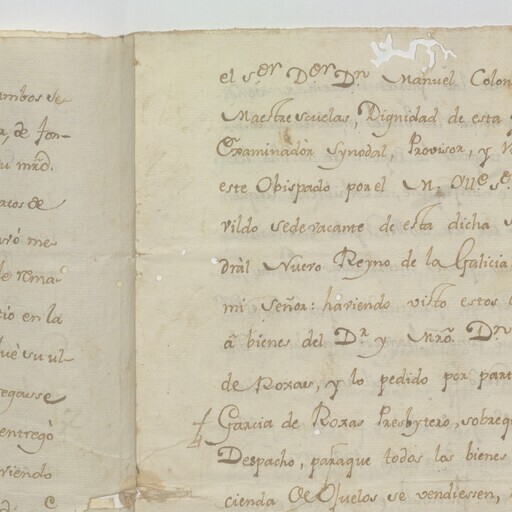 ambos se
a, de fon-
su mrd.
de
uró me
de rema-
tió en la
ué su ul-
egasse
entregò
viendo
el Sor. Dor. Dn. Manuel Colon
Maestre scuelas, Dignidad de esta
Examinadòr Synodal, Provisor, y V
este Obispado por el M. Ille. Se.
vildo sede vacante de esta dicha
dràl Nuevo Reyno de la Galicia
mi Señor: haviendo visto estos
à bienes del Dr. y Mrò. Dn.
de Roxas, y lo pedido por part
Garcia de Roxas Presbytero, sobre q
Despacho, paraque todos los bienes
cienda de Ojuelos se vendiessen,